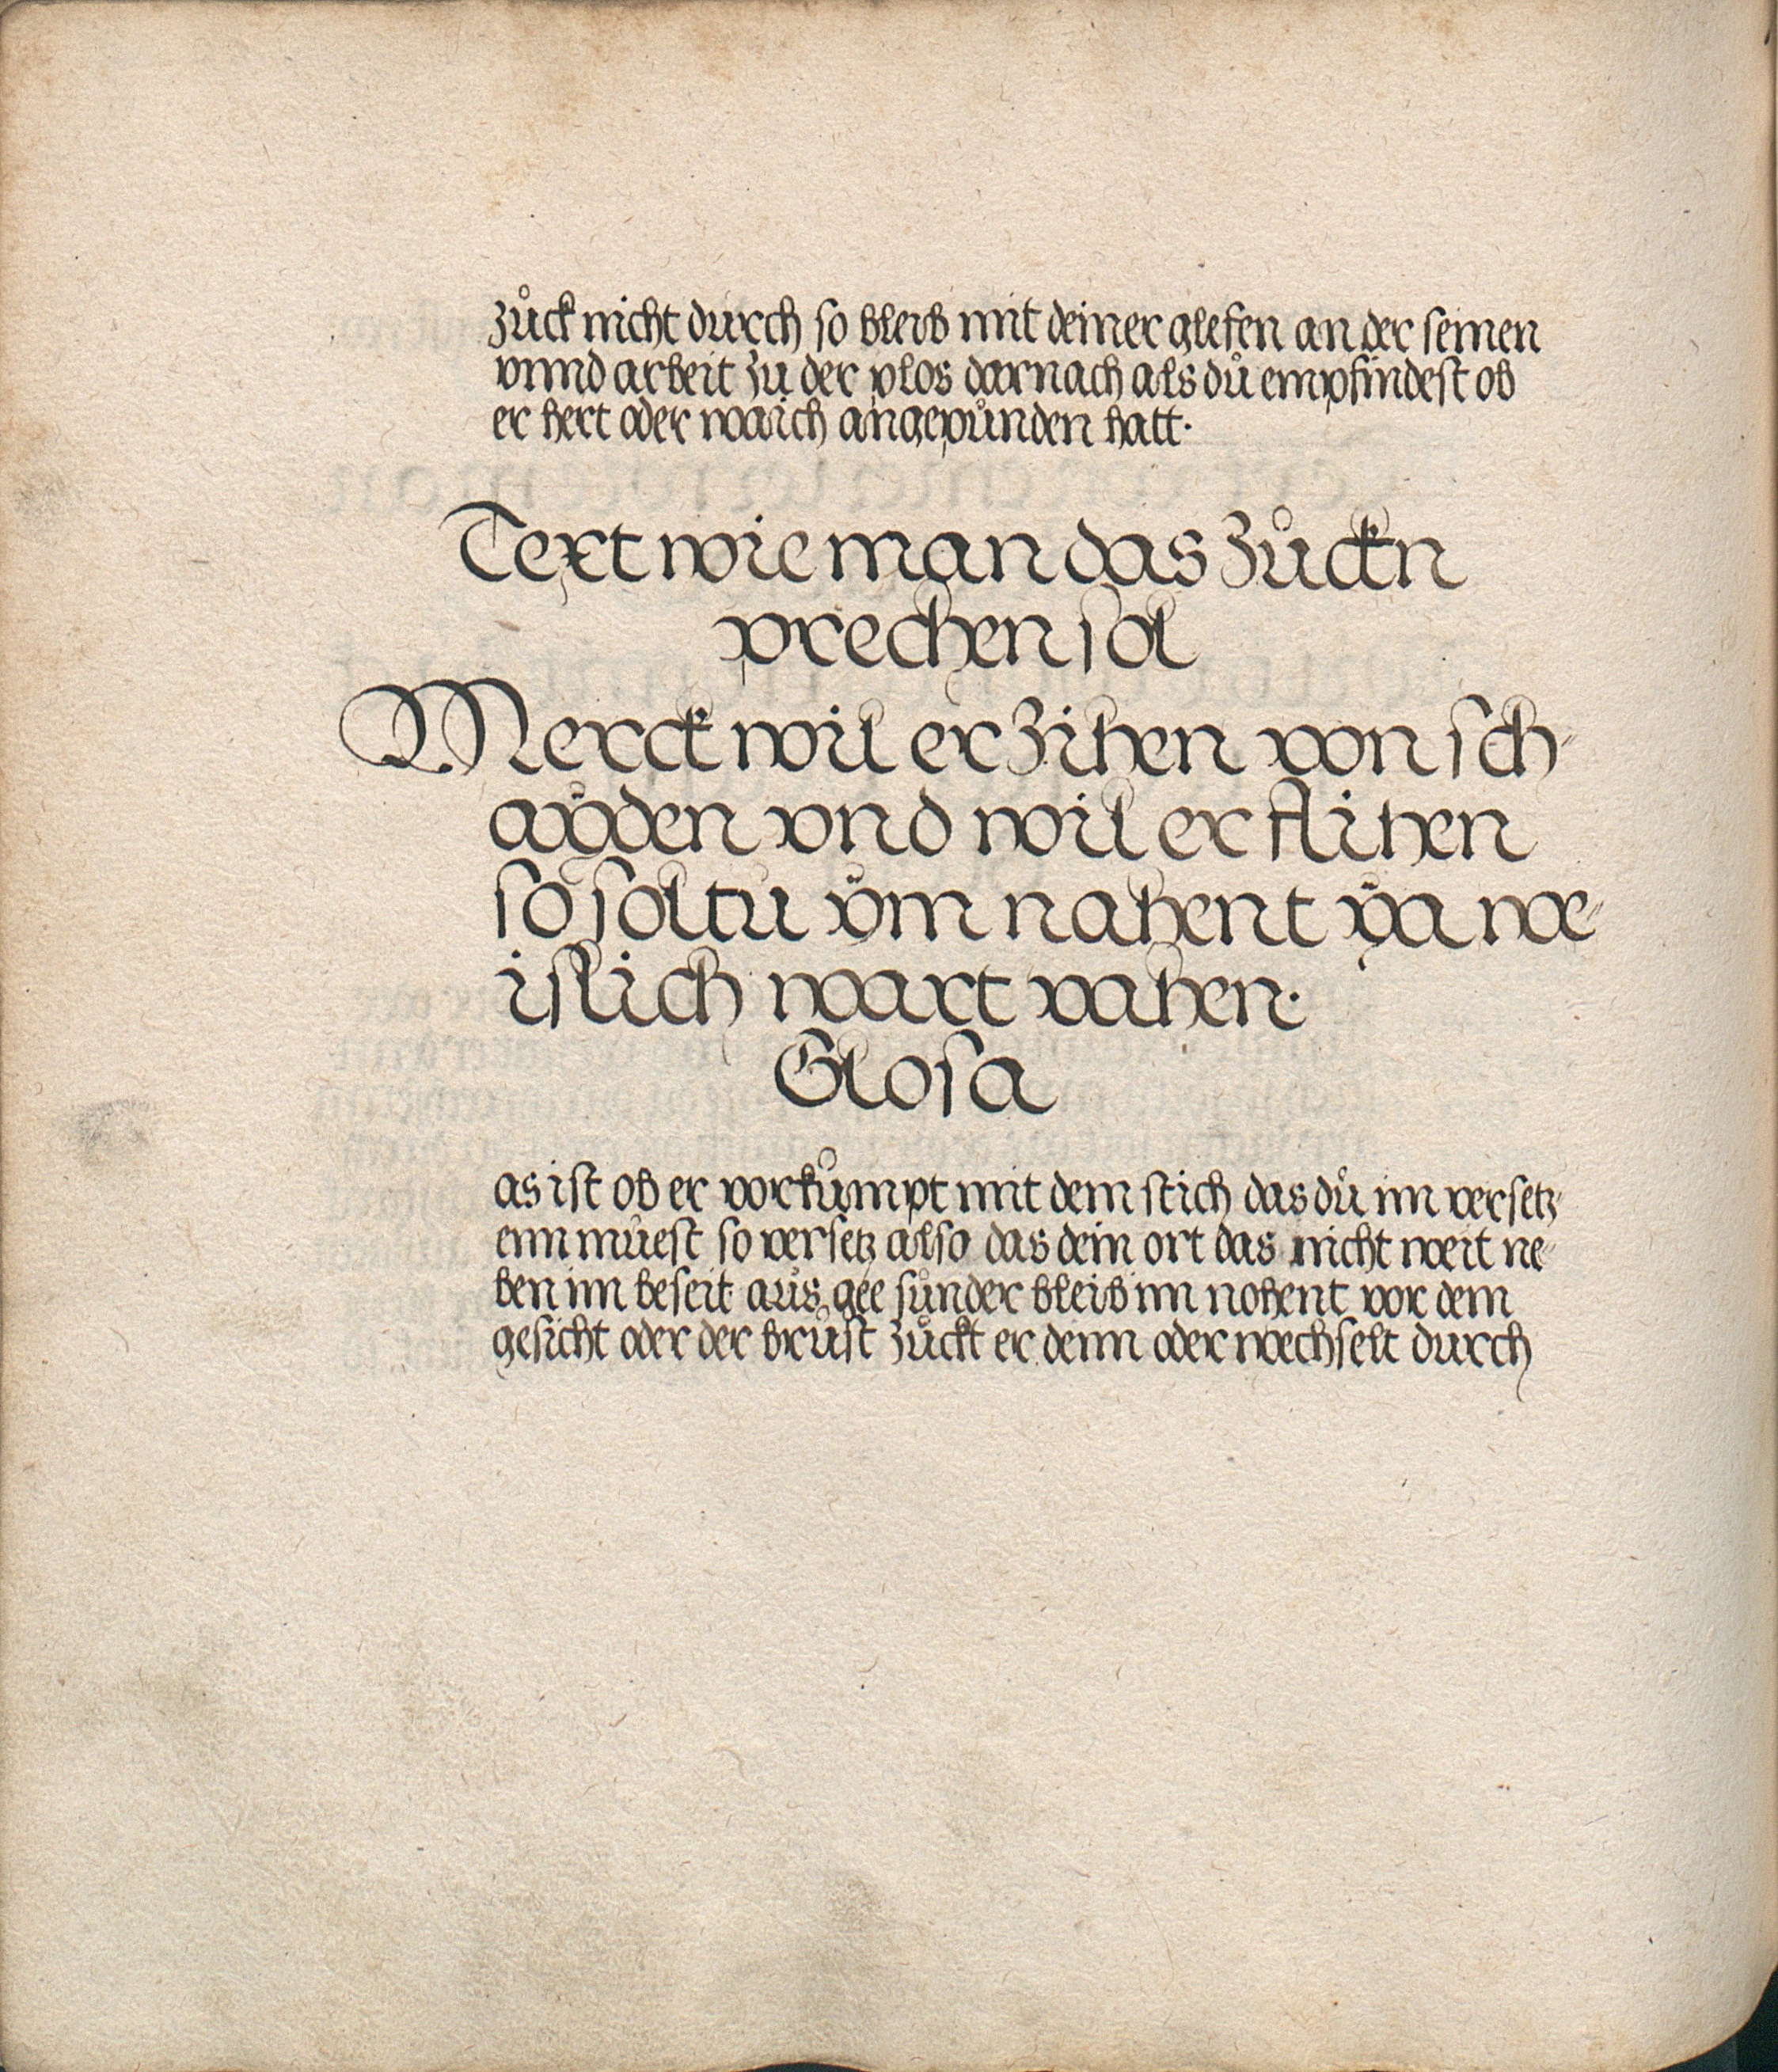 zůck nicht durch so bleib mit deiner glefen an der seinen
vnnd arbeit zu der plos darnach als dů empfindest ob
er hert oder waich angepůnden hatt·
Text wie man das zůckn
prechen sol
Merck wil er zihen von sch-
ayden vnd wil er flihen
so soltu ym nahent ya we-
islich wart vahen·
Glosa
as ist ob er vorkůmpt mit dem stich das dů im versetz-
enn můest so versetz also das dein ort das nicht weit ne-
ben im beseit aůs gee sůnder bleib im nohent vor dem
gesicht oder der brůst zůckt er denn oder wechselt durch